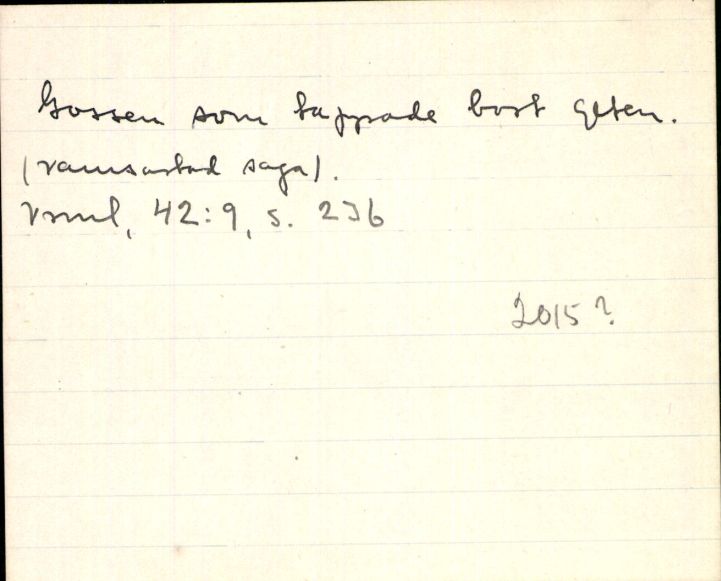 Gossen som tappade bort geten.
(ramsartad saga).
VFml, 42:9, s. 236
2015?